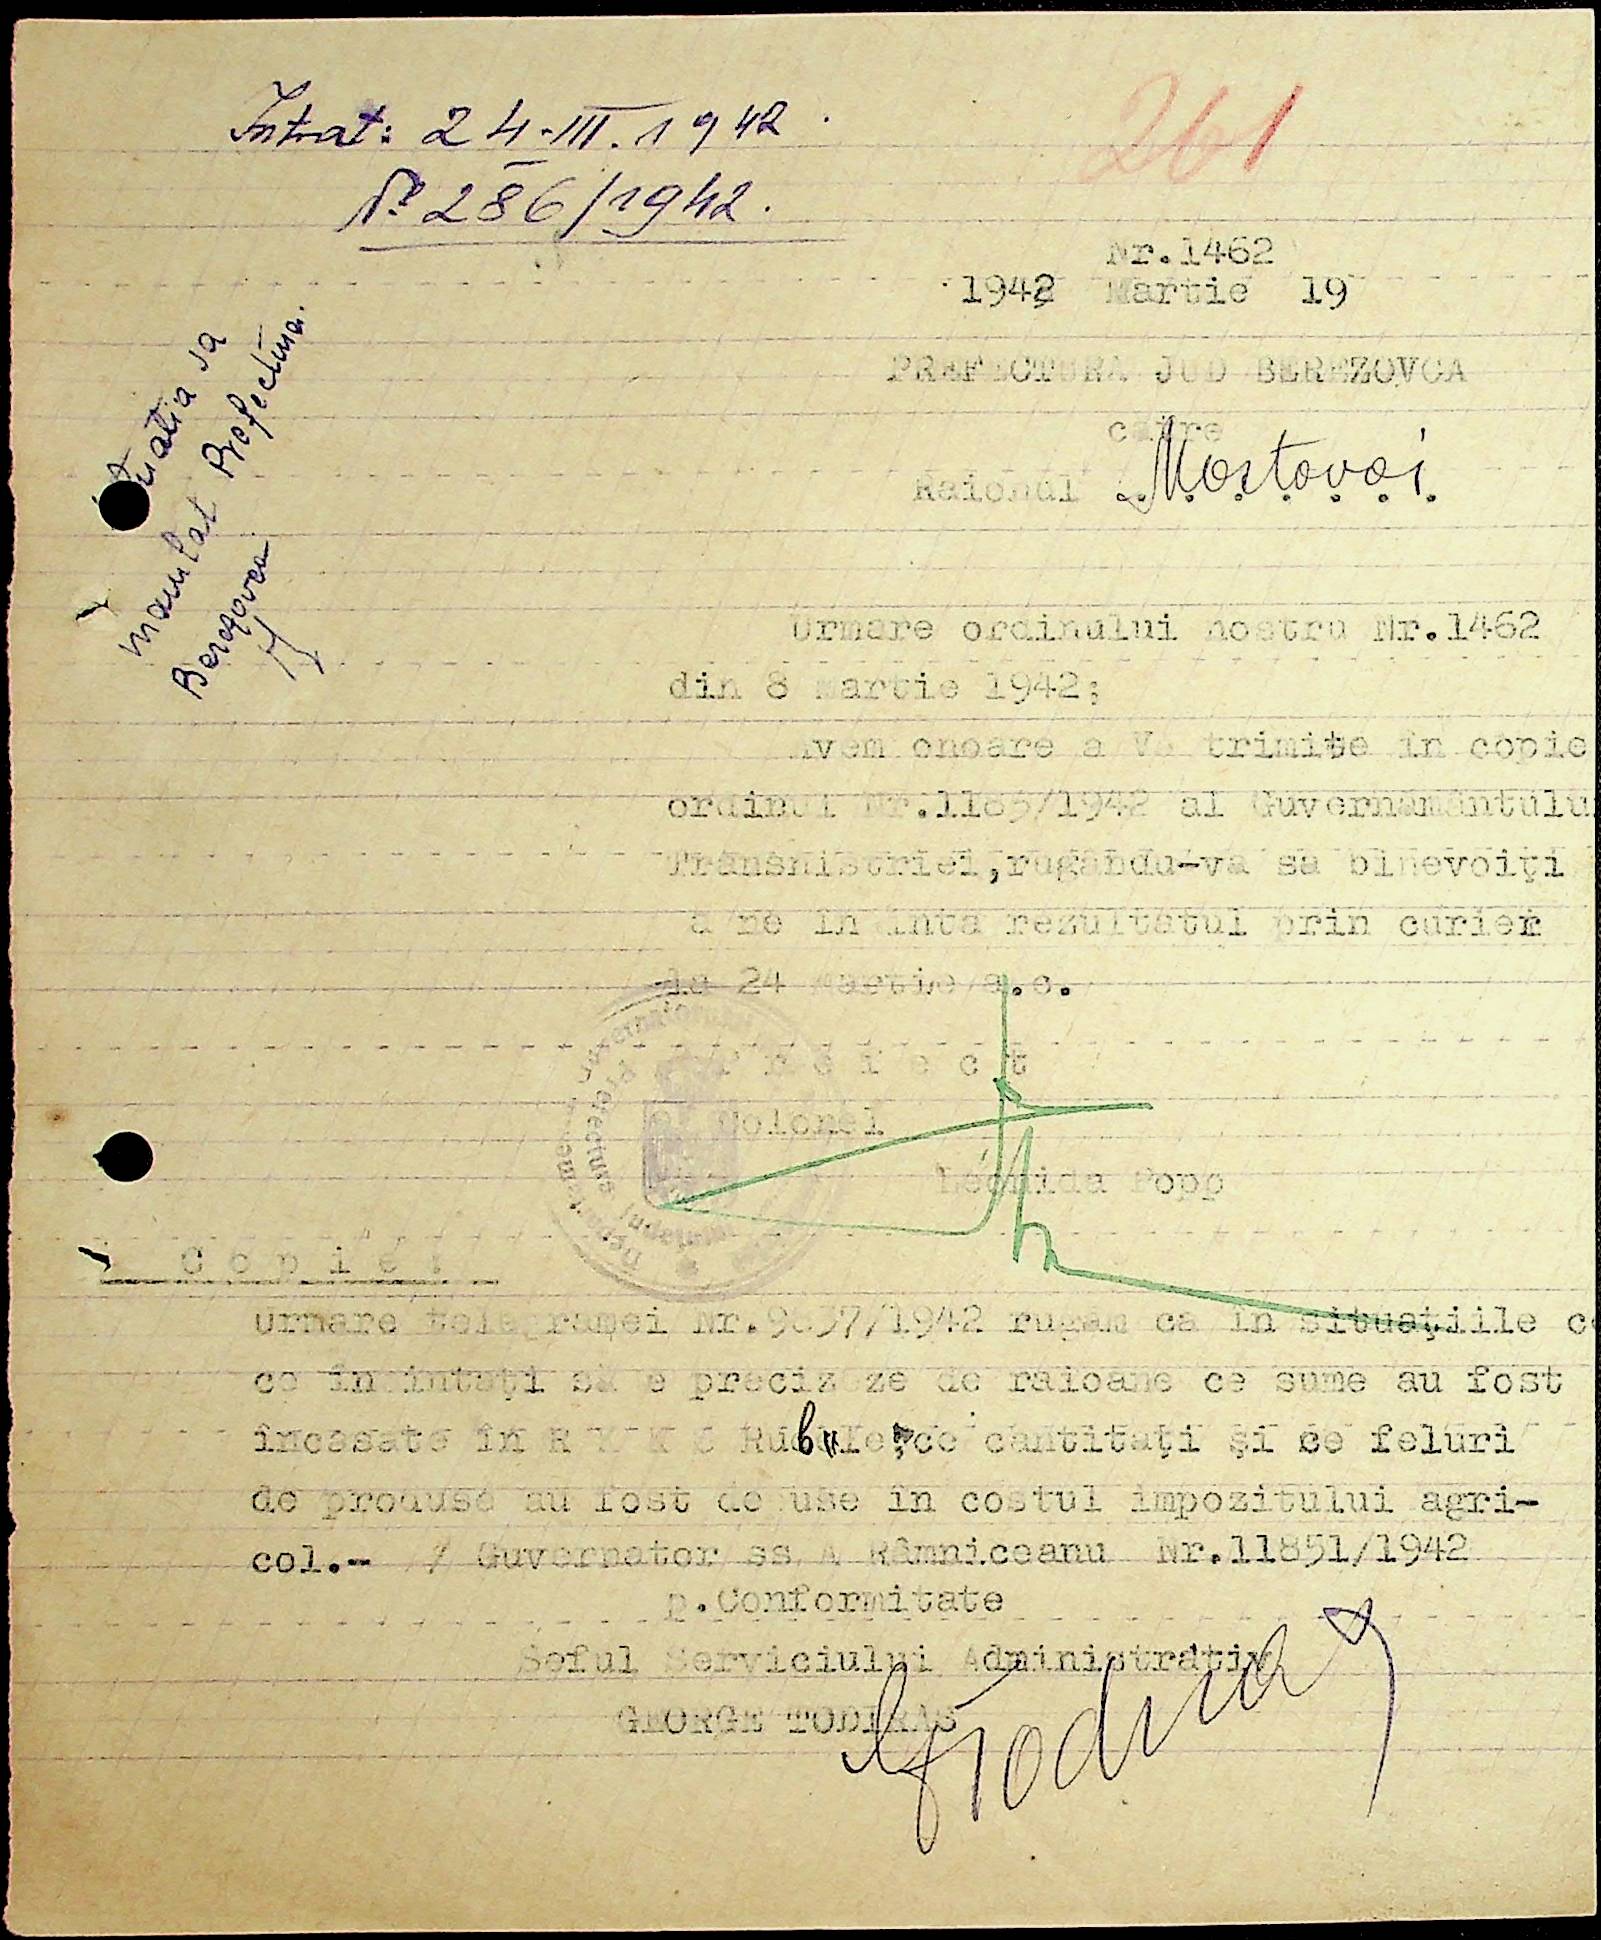 Intrat: 24-III.1942.
No 286/1942.
261
Nr.1462
1942 Martie 19
PREFECTURA JUD BEREZOVCA
catre
Raionul Mostovoi
sa
inaintat Prefectura
Berezovca
Urmare ordinului nostru Nr.1462
din 8 martie 1942;
Avem onoare a Va trimite in copie
ordinul Nr. /1942 al Guvernamântului
Transnistriei,rugându-va sa binevoiţi
a ne in inta rezultatul prin curier
la 24 Martie a.c.
P r e f e c t
Colonel
Leonida Popp
Prefectura Judeţului
C o p i e :
Urmare telegramei Nr. /1942 rugam ca in situaţiile ce
ce în intaţi să se precizeze de raioane ce sume au fost
încasate în R K K S Ruble, ce cantitaţi şi ce feluri
de produse au fost de use in costul impozitului agri-
col.- / Guvernator ss A Râmniceanu Nr.11851/1942
p.Conformitate
Seful Serviciului Administrativ
GEORGE TODIRAS